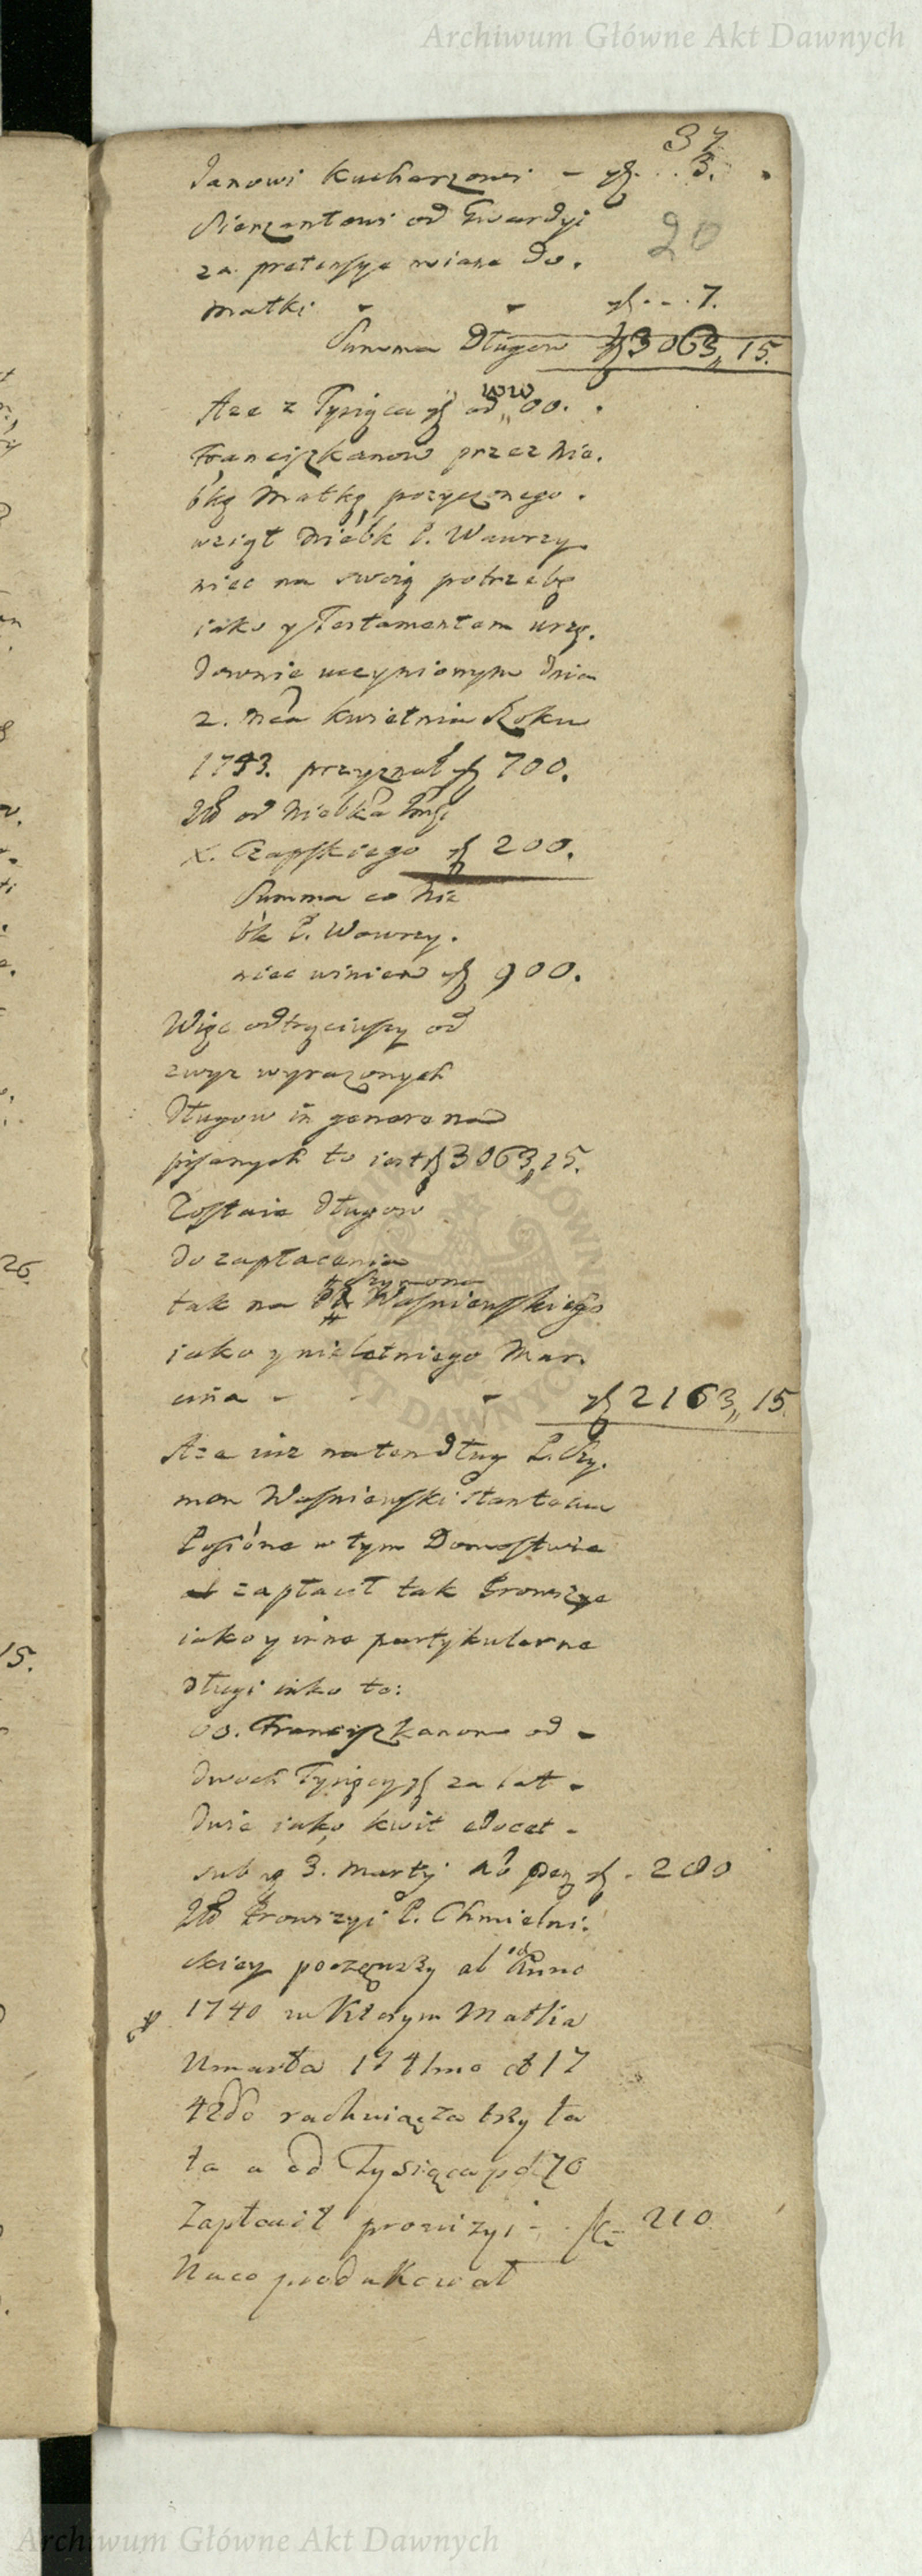 Archiwum Główne Akt Dawnych
37
Janowi Kucharzowi - zł. . . 3.
Sierzantowi od Gwardyi
20
za pretensye miane do.
Matki - - zł. - . 7.
Summa Długow zł 3063,, 15.
Aze z Tysiąca zł od WW OO.
Franciszkanow przez Nie.
bkę Matkę pozyczonego.
wziął Niebk P. Wawrzy.
niec na swoią potrzebę
iako y Testamentem urzę.
downie uczynionym dnia
2. Mca Kwietnia Roku
1743. przyznał zł 700.
Itd od Niebka
X. Czapskiego zł 200.
Summa co Nie
bk P. Wawrzy.
niec winien zł 900.
Więc odtrąciwszy od
zwyz wyrazonych
Długow in genere na
pisanych to iest zł 3063,,15.
Zostaie Długow
do zapłacenia
Szymona
tak na Waśniewskiego
iako y nieletniego Mar.
cina - - - zł 2163,, 15.
Aze iuz na ten dług P. Szy.
mon Waśniewski
w tym Domostwie
zapłacił tak Prowizye
iako y inne partykularne
długi iako to:
OO. Franciszkanom od -
dwoch Tysięcy zł za lat -
dwie iako kwit docet -
sub 3. Martij zł . 280
Itd Prowizyi P. Chmielni:
ckiey począwszy ab Anno
1740 w Ktorym Matka
Umarła 1741mo et 17
42do rachuiąc za trzy la
ta a od Tysiąca po zł 70
Zapłacił prowizyi - . zł - 210
Naco produkował
Archiwum Główne Akt Dawnych